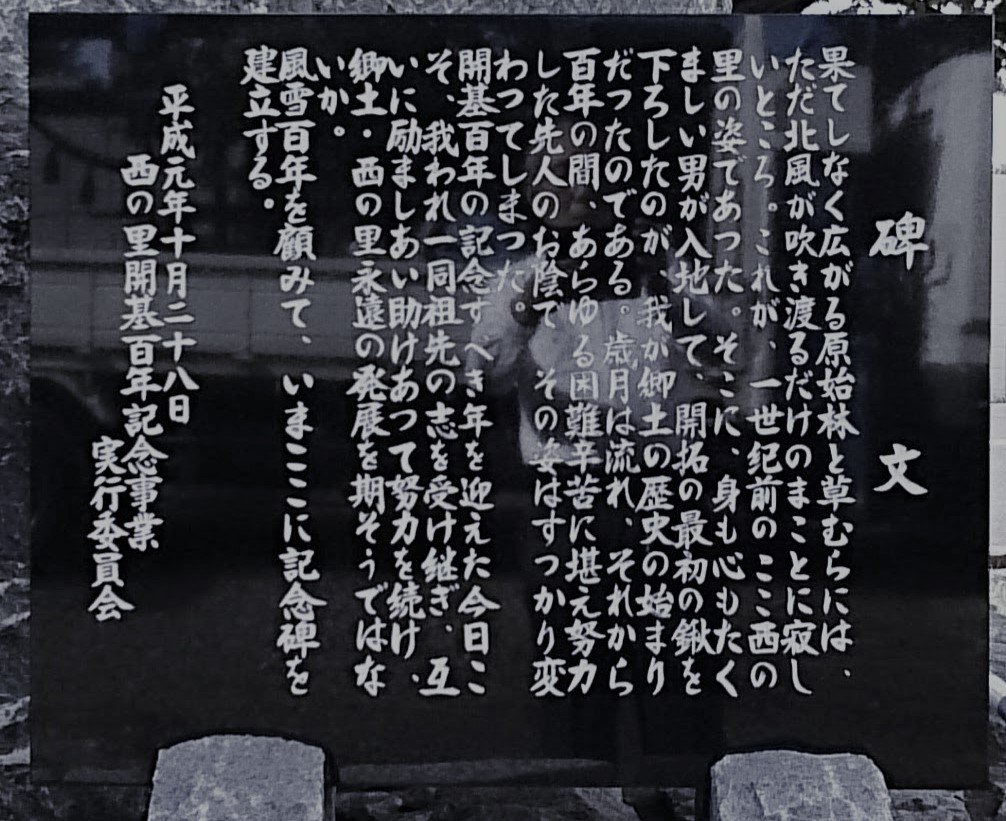 碑文
果てしなく広がる原始林と草むらには、
ただ北風が吹き渡るだけのまことに寂し
いところ。これが、一世紀前のここ西の
里の姿であつた。そこに、身も心もたく
ましい男が入地して、開拓の最初の鍬を
下ろしたのが、我が郷土の歴史の始まり
だつたのである。歳月は流れ、それから
百年の間、あらゆる困難辛苦に堪え努力
した先人のお陰で、その姿はすつかり変
わつてしまつた。
開基百年の記念すべき年を迎えた今日こ
そ、我われ一同祖先の志を受け継ぎ、互
いに励ましあい助けあつて努力を続け、
郷土・西の里永遠の発展を期そうではな
いか。
風雪百年を顧みて、いまここに記念碑を
建立する。
平成元年十月二十八日
西の里開基百年記念事業
実行委員会